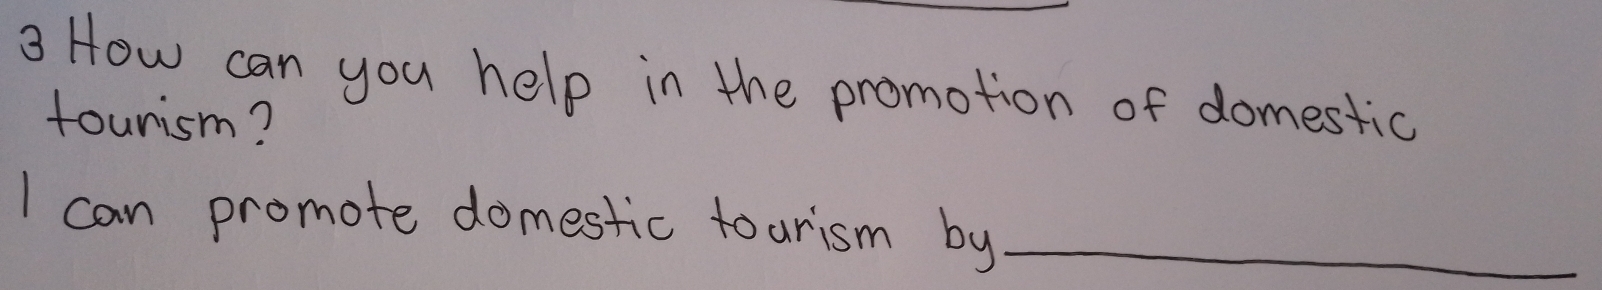 3 How can you help in the promotion of domestic
tourism?
I can promote domestic tourism by